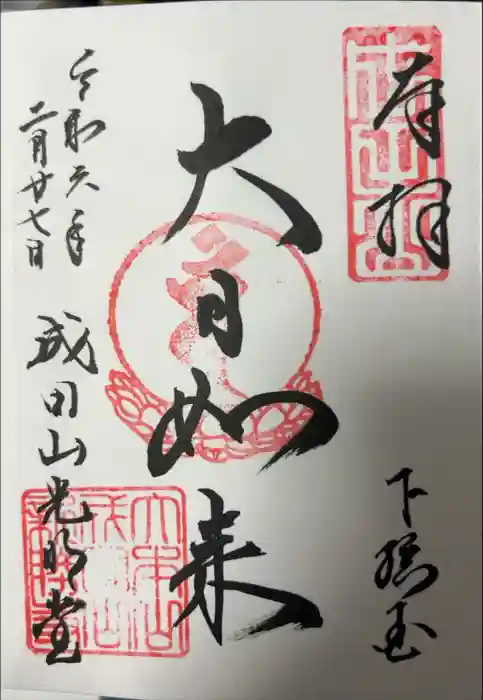 奉拝
下総国
大日如来
成田山光明堂
令和六年
二月廿七日